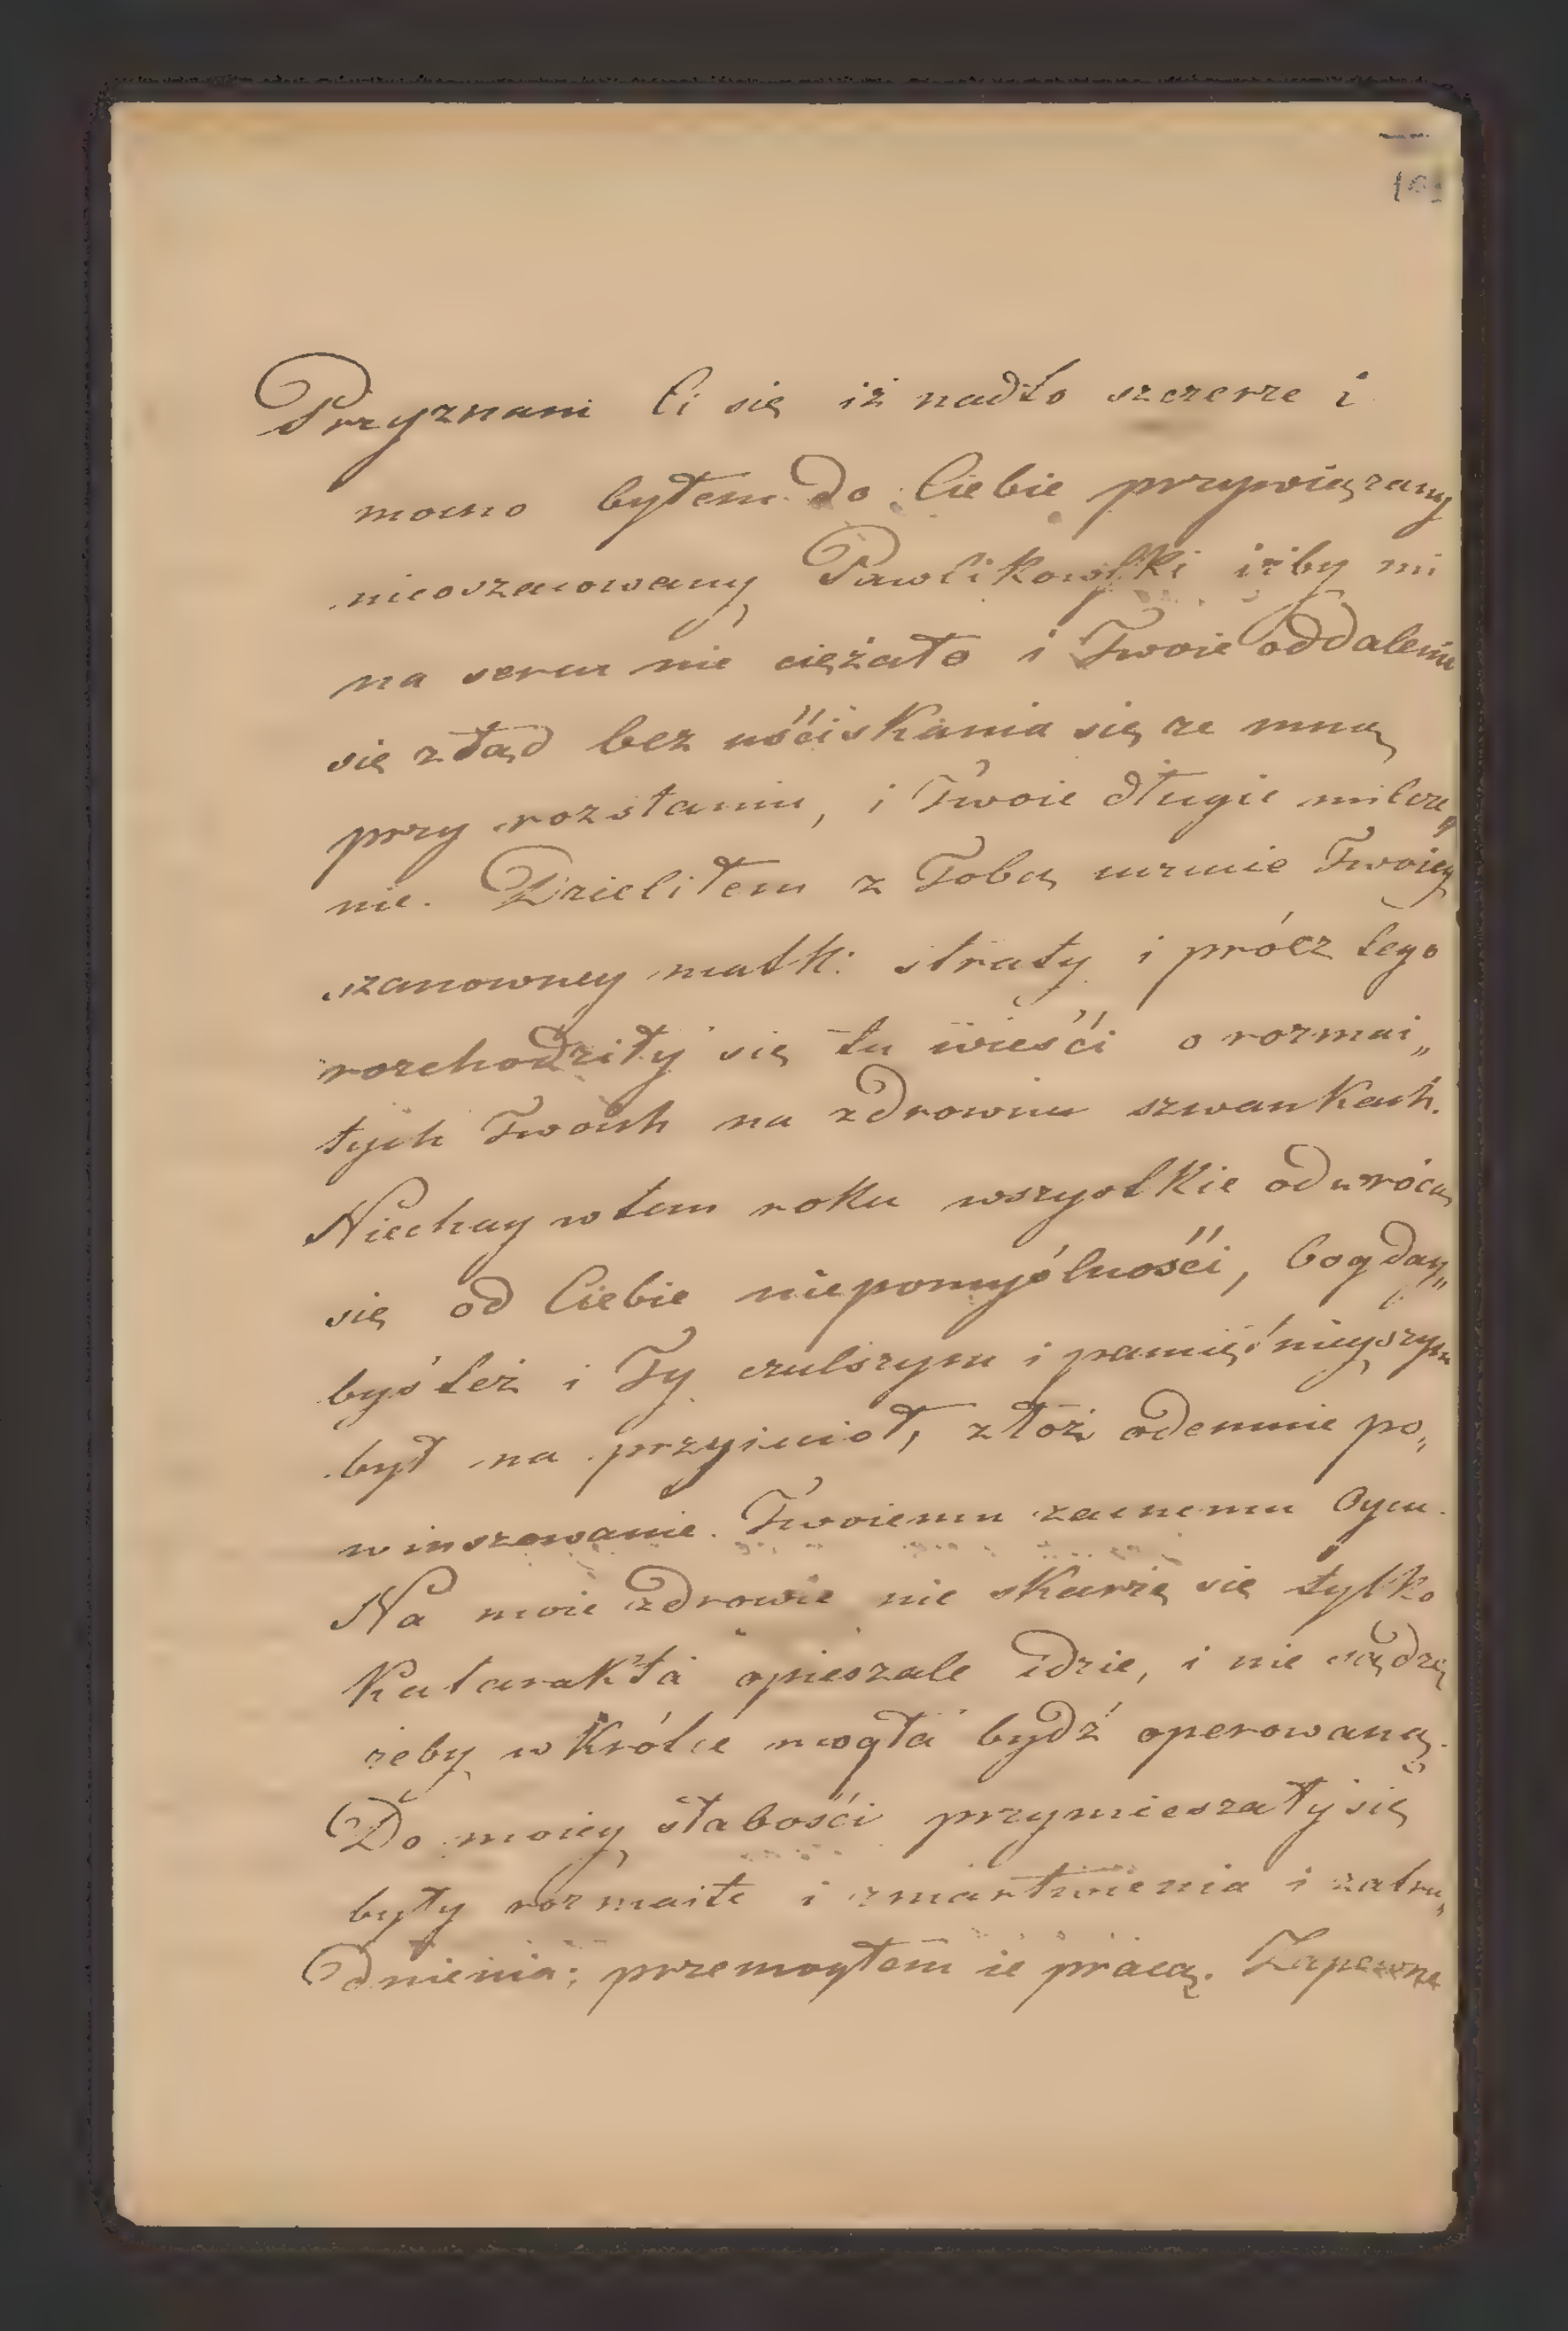 Przyznam Ci się iż nadto szczerze i
mocno byłem do Ciebie przywiązany
nieoszacowany Pawlikowski iżby mi
na sercu nie ciężało i Twoie oddalenie
się ztąd bez uściskania się ze mną
przy rozstaniu, i Twoie długie milcze„
nie. Dzieliłem z Tobą Twoiey
szanowney matki straty i prócz tego
rozchodziły się tu wieści o rozmai„
tych Twoich na zdrowiu szwankach.
Niechay w tem roku wszystkie odwrócą
się od Ciebie niepomyślności, bogday„
byś też i Ty czulszym i pamiętnieyszym
był na przyiaciół, złóż odemnie po„
winszowanie Twoiemu zacnemu Oycu.
Na moie zdrowie nie skarżę się tylko
Katarakta opieszale idzie, i nie sądzę
żeby w krótce mogła bydź operowaną.
Do moiey słabości przymieszały się
były rozmaite i zmartwienia i zatru„
dnienia; przemogłem ie pracą. Zapewne